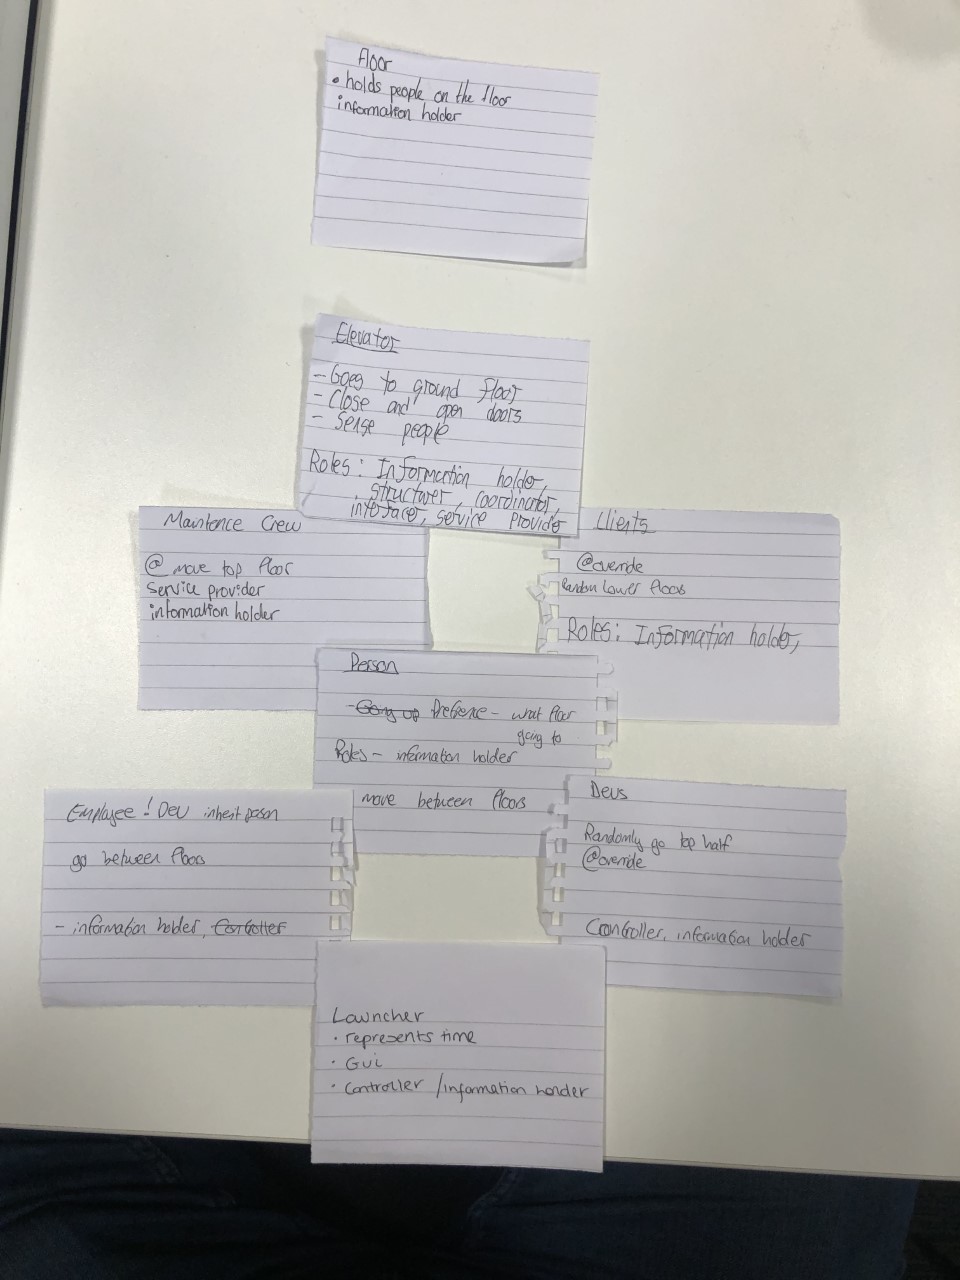 Floor
• holds people on the floor
information holder
Elevator
- Goes to ground floor
- Close and open doors
- Sense people
Roles: Information holder,
structurer, coordinator,
interfacer, service provider
Maintence Crew
@ move top floor
Service provider
information holder
Clients
@override
Random Lower floors
Roles: Information holder,
Person
- Going up Prefrence - what floor
going to
Roles - information holder
move between floors
Employee! Dev inherit person
go between floors
- information holder, Controller
Devs
Randomly go top half
@override
Controller, information holder
Launcher
• represents time
• Gui
• Controller / information holder